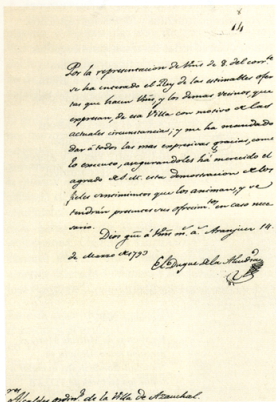 14
Por la representacion de Vms de 8. del corr.te
se ha enterado el Rey de las estimables ofer-
tas que hacen Vms, y los demas vecinos, que
expresan, de esa Villa con motivo de las
actuales circunstancias; y me ha mandado
dar á todos las mas expresivas gracias, como
lo executo, asegurandoles ha merecido el
agrado de S.M. esta demostracion de los
fieles sentimientos que los animan, y se
tendrán presentes sus ofrecim.tos en caso nece-
sario.
Dios gue á Vms m. a. Aranjuez 14.
de Marzo de 1793
El Duque de la Alcudia
Alcaldes ordin.s de la Villa de Azauchal.